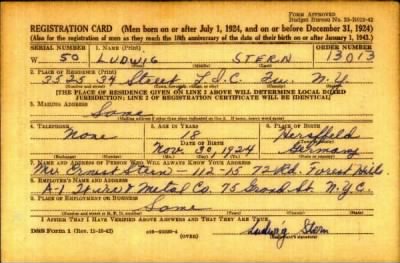 FORM APPROVED
Budget Bureau No. 33-R012-42
REGISTRATION CARD (Men born on or after July 1, 1924, and on or before December 31, 1924)
(Also for the registration of men as they reach the 18th anniversary of the date of their birth on or after January 1, 1943.)
SERIAL NUMBER 1. NAME (Print) ORDER NUMBER
W 50 LUDWIG STERN 13013
(First) (Middle) (Last)
2. PLACE OF RESIDENCE (Print)
2525 39 Street L.I.C. N.Y.
[THE PLACE OF RESIDENCE GIVEN ON LINE 2 ABOVE WILL DETERMINE LOCAL BOARD
JURISDICTION; LINE 2 OF REGISTRATION CERTIFICATE WILL BE IDENTICAL]
3. MAILING ADDRESS
Same
4. TELEPHONE 5. AGE IN YEARS 6. PLACE OF BIRTH
None 18 Hersfeld
DATE OF BIRTH
Nov. 30, 1924 Germany
7. NAME AND ADDRESS OF PERSON WHO WILL ALWAYS KNOW YOUR ADDRESS
Mr Ernest Stern - 112-15 72 Rd. Forest Hills
8. EMPLOYER'S NAME AND ADDRESS
A-1 & Metal Co. 75 Grand St. N.Y.C.
9. PLACE OF EMPLOYMENT OR BUSINESS
Same
I AFFIRM THAT I HAVE VERIFIED ABOVE ANSWERS AND THAT THEY ARE TRUE.
DSS Form 1 (Rev. 11-16-42) Ludwig Stern